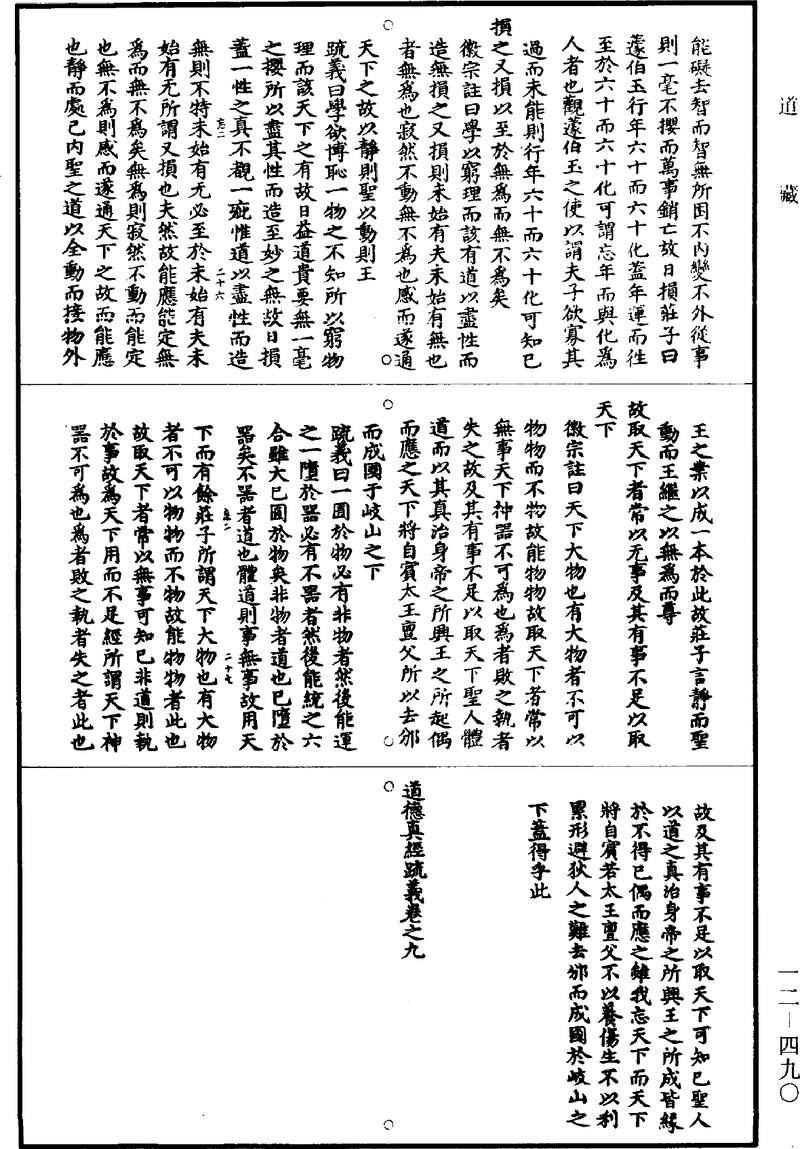 道藏
能礙去智而智無所困不內變不外從事
則一毫不攖而萬事銷亡故日損莊子曰
蘧伯玉行年六十而六十化蓋年運而徃
至於六十而六十化可謂忘年而與化為
人者也觀蘧伯玉之使以謂夫子欲寡其
過而未能則行年六十而六十化可知已
損之又損以至於無為而無不為矣
徽宗註曰學以窮理而該有道以盡性而
造無損之又損則未始有夫未始有無也
者無為也寂然不動無不為也感而遂通
天下之故以靜則聖以動則王
疏義曰學欲博恥一物之不知所以窮物
理而該天下之有故日益道貴要無一毫
之攖所以盡其性而造至妙之無故日損
蓋一性之真不觀一疵惟道以盡性而造
無則不特未始有无必至於未始有夫未
始有无所謂又損也夫然故能應能定無
為而無不為矣無為則寂然不動而能定
也無不為則感而遂通天下之故而能應
也靜而處己內聖之道以全動而接物外
二十六
王之業以成一本於此故莊子言靜而聖
動而王繼之以無為而尊
故取天下者常以无事及其有事不足以取
天下
徽宗註曰天下大物也有大物者不可以
物物而不物故能物物故取天下者常以
無事天下神器不可為也為者敗之執者
失之故及其有事不足以取天下聖人體
道而以其真治身帝之所興王之所起偶
而應之天下將自賓太王亶父所以去邠
而成國于岐山之下
疏義曰一囿於物必有非物者然後能運
之一墮於器必有不器者然後能統之六
合雖大已囿於物矣非物者道也已墮於
器矣不器者道也體道則事無事故用天
下而有餘莊子所謂天下大物也有大物
者不可以物物而不物故能物物者此也
故取天下者常以無事可知已非道則執
於事故為天下用而不足經所謂天下神
器不可為也為者敗之執者失之者此也
二十七
故及其有事不足以取天下可知已聖人
以道之真治身帝之所興王之所成皆緣
於不得已偶而應之雖我忘天下而天下
將自賓若太王亶父不以養傷生不以利
累形避狄人之難去邠而成國於岐山之
下蓋得乎此
道德真經疏義卷之九
一二—四九〇